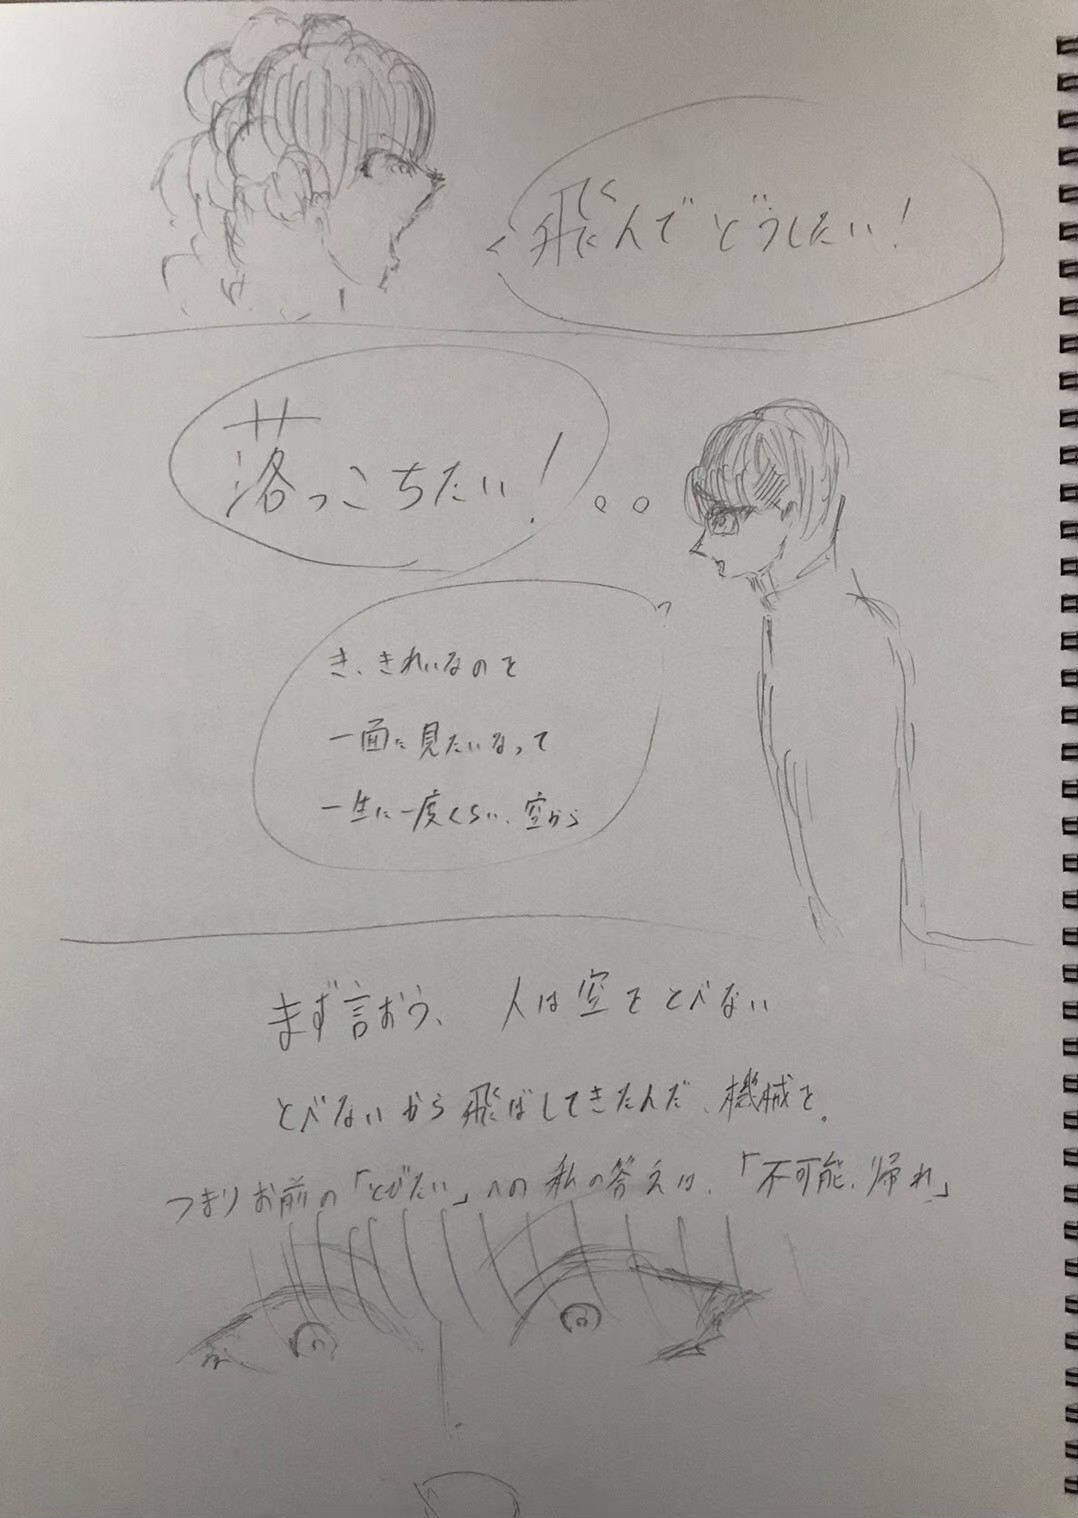 飛んでどうしたい!
落っこちたい!
き、きれいなのを
一面に見たいなって
一生に一度くらい、空から
まず言おう、人は空をとべない
とべないから飛ばしてきたんだ、機械を。
つまりお前の「とびたい」への私の答えは、「不可能、帰れ」